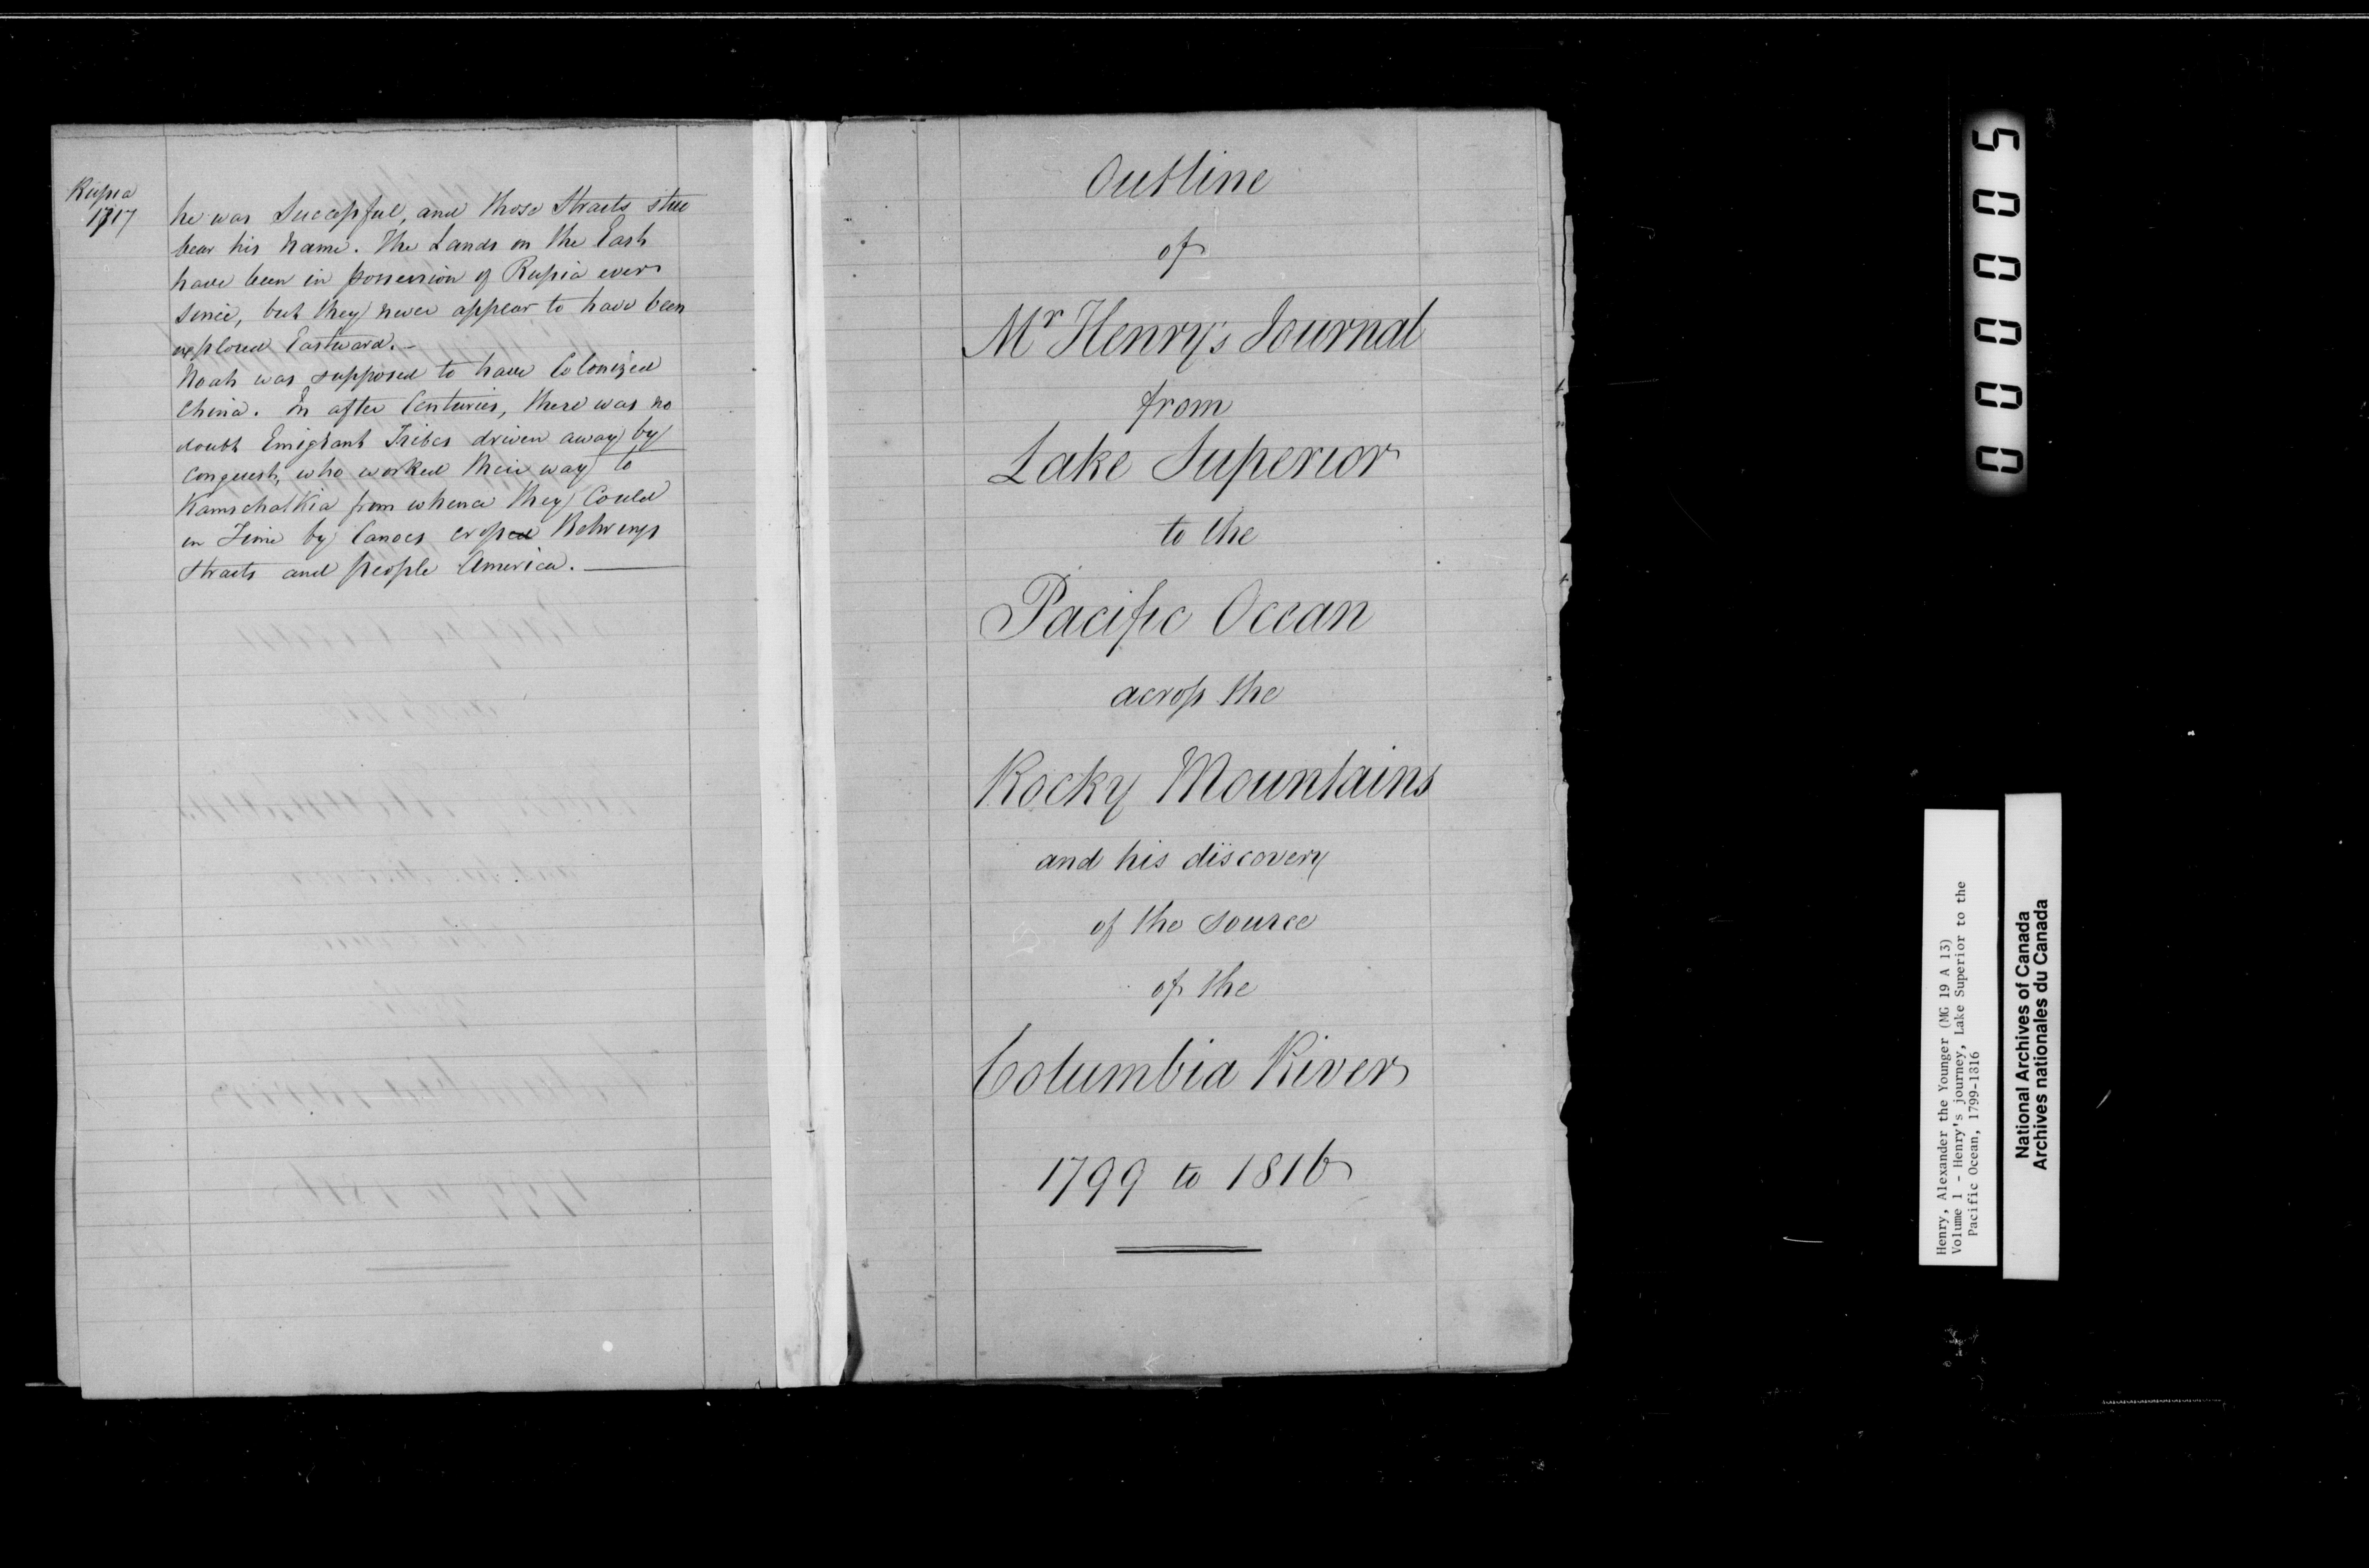 Russia
1717
he was Successful, and those Straits still
bear his Name. The Lands on the East
have been in possession of Russia ever
since, but they never appear to have been
explored Eastward.—
Noah was supposed to have Colonized
China. In after Centuries, there was no
doubt Emigrant Tribes driven away by
Conquest, who worked their way to
Kamschatkia from whence they Could
in Time by Canoes cross Behrings
Straits and people America.—
Outline
of
Mr Henry's Journal
from
Lake Superior
to the
Pacific Ocean
across the
Rocky Mountains
and his discovery
of the source
of the
Columbia River
1799 to 1816
000005
Henry, Alexander the Younger (MG 19 A 13)
Volume 1 - Henry's journey, Lake Superior to the
Pacific Ocean, 1799-1816
National Archives of Canada
Archives nationales du Canada